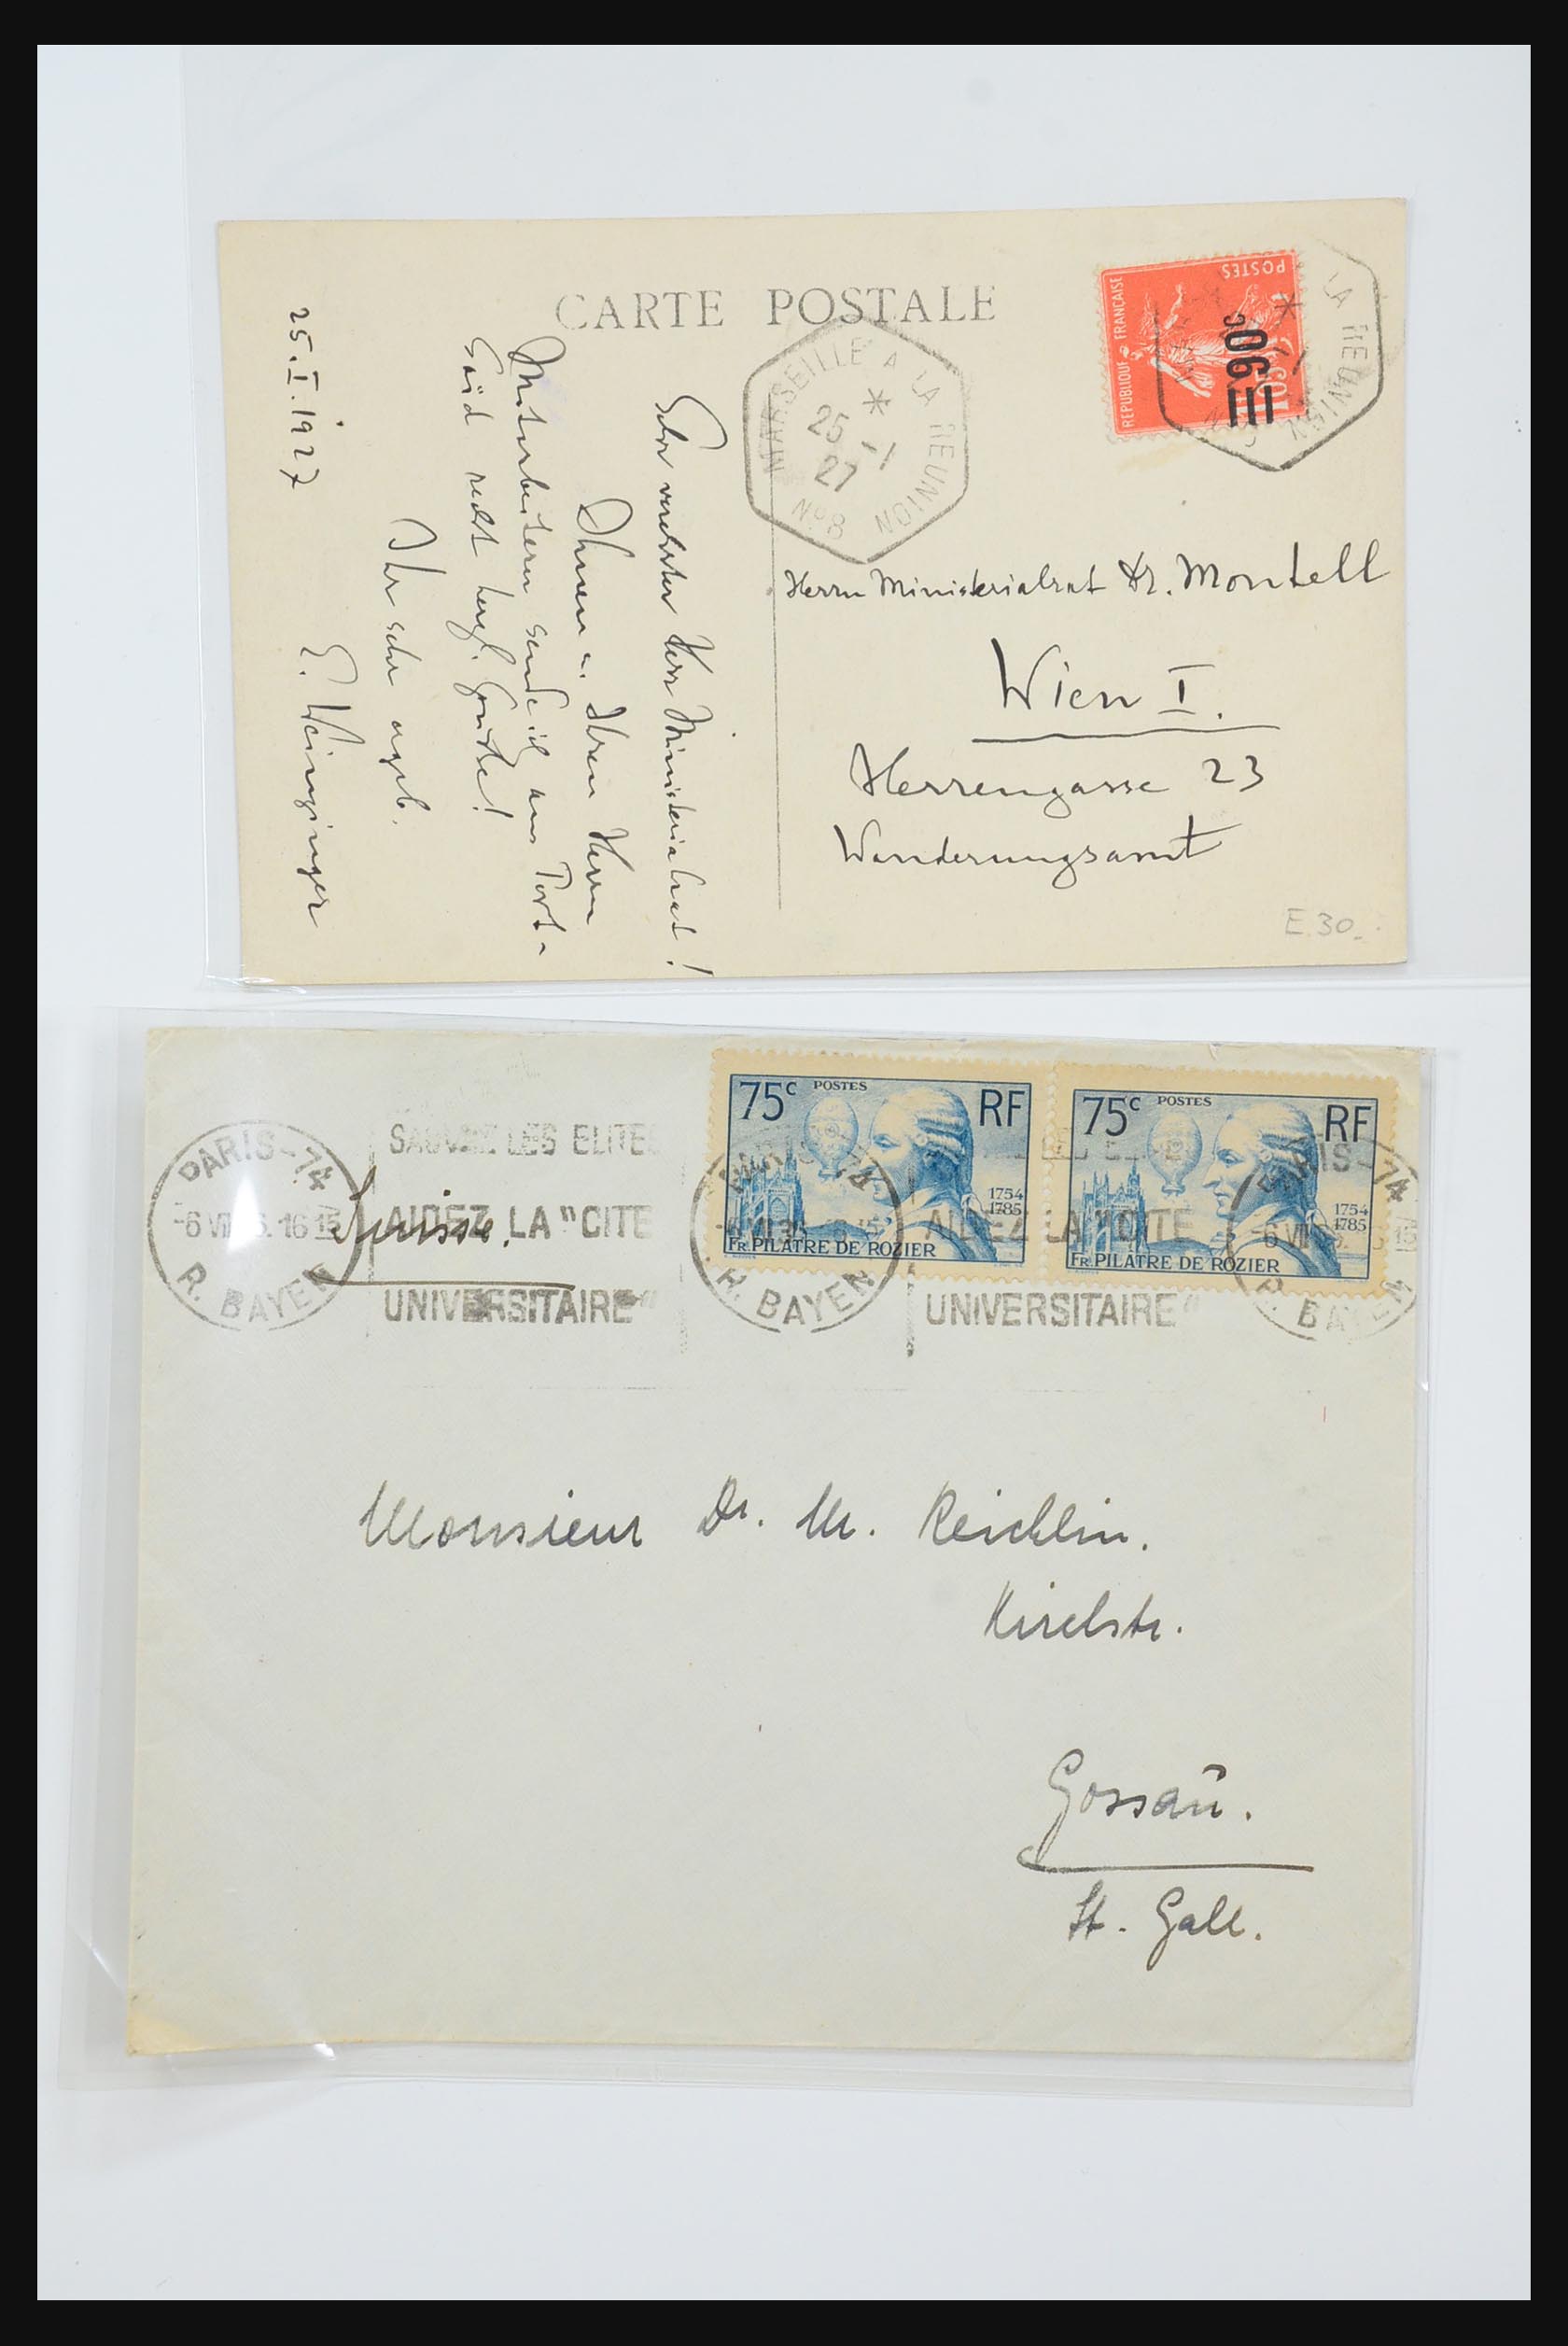 CARTE POSTALE
REPUBLIQUE FRANÇAISE
POSTES
=90c
105
LA REUNION
MARSEILLE A LA REUNION
25 -1
27
N°8
Sehr verehrter Herr Ministerialrat!
Ihnen u. Ihren Herrn
Mitarbeitern sende ich aus Port-
Said recht herzl. Grüße!
Ihr sehr ergeb.
25.I.1927 E. Weinzinger
Herrn Ministerialrat Dr. Montell
Wien I.
Herrengasse 23
Wanderungsamt
E.30.-
75c POSTES RF
1754
1785
FR. PILATRE DE ROZIER
75c POSTES RF
1754
1785
FR. PILATRE DE ROZIER
PARIS-74
R. BAYEN
SAUVEZ LES ELITES
AIDEZ LA "CITE
UNIVERSITAIRE"
R. BAYEN
AIDEZ LA "CITE
UNIVERSITAIRE"
Suisse.
Monsieur Dr. M. Reichlin.
Kirchstr.
Gossau.
St. Gall.